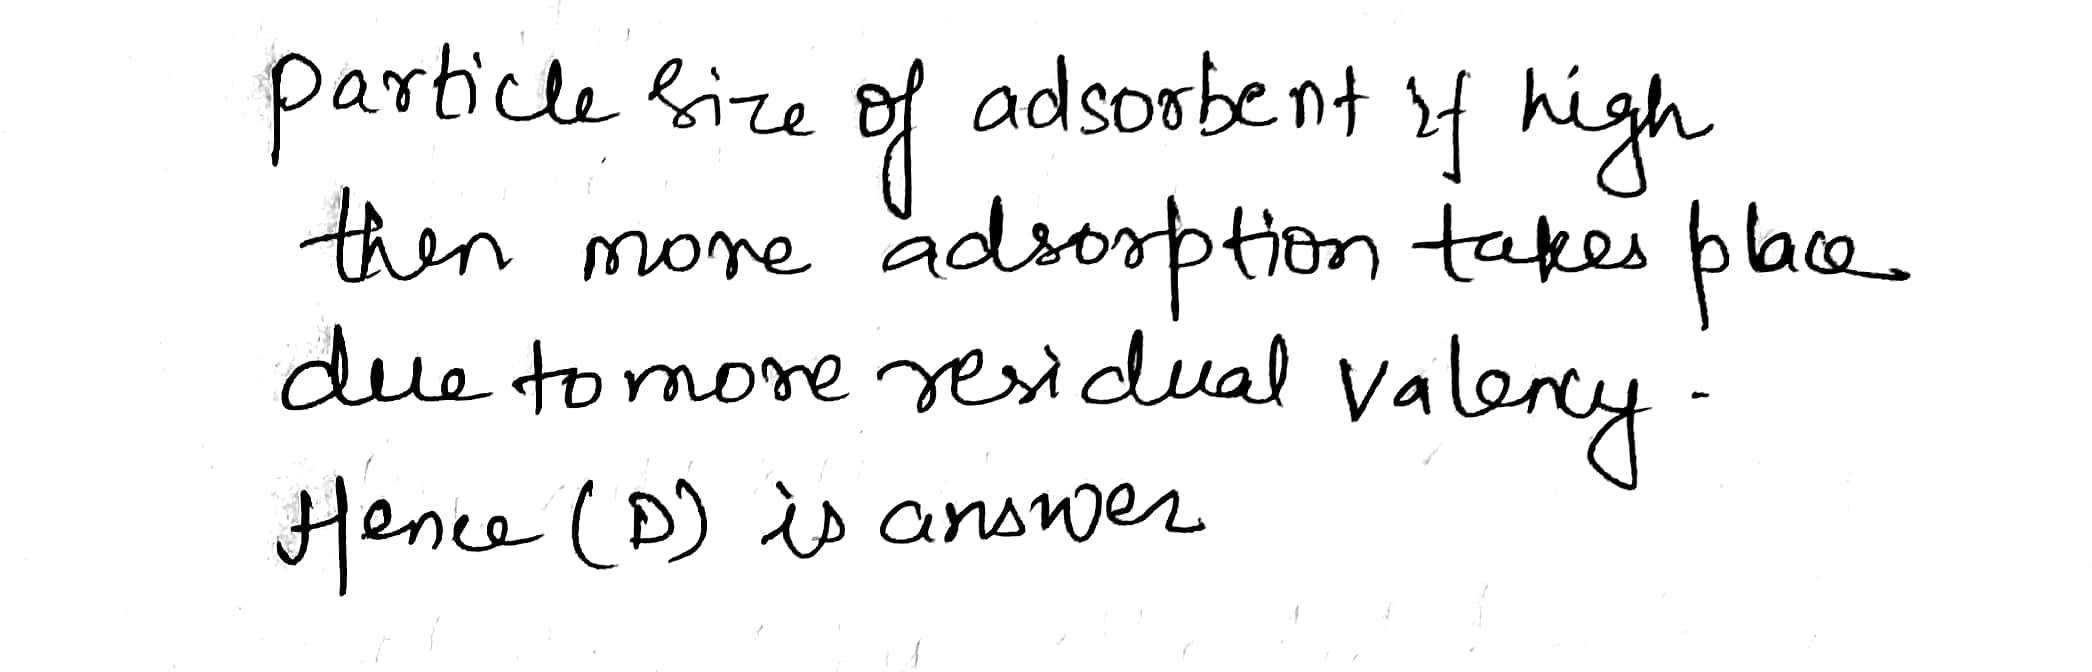 particle size of adsorbent if high
then more adsorption takes place
due to more residual valency.
Hence (D) is answer